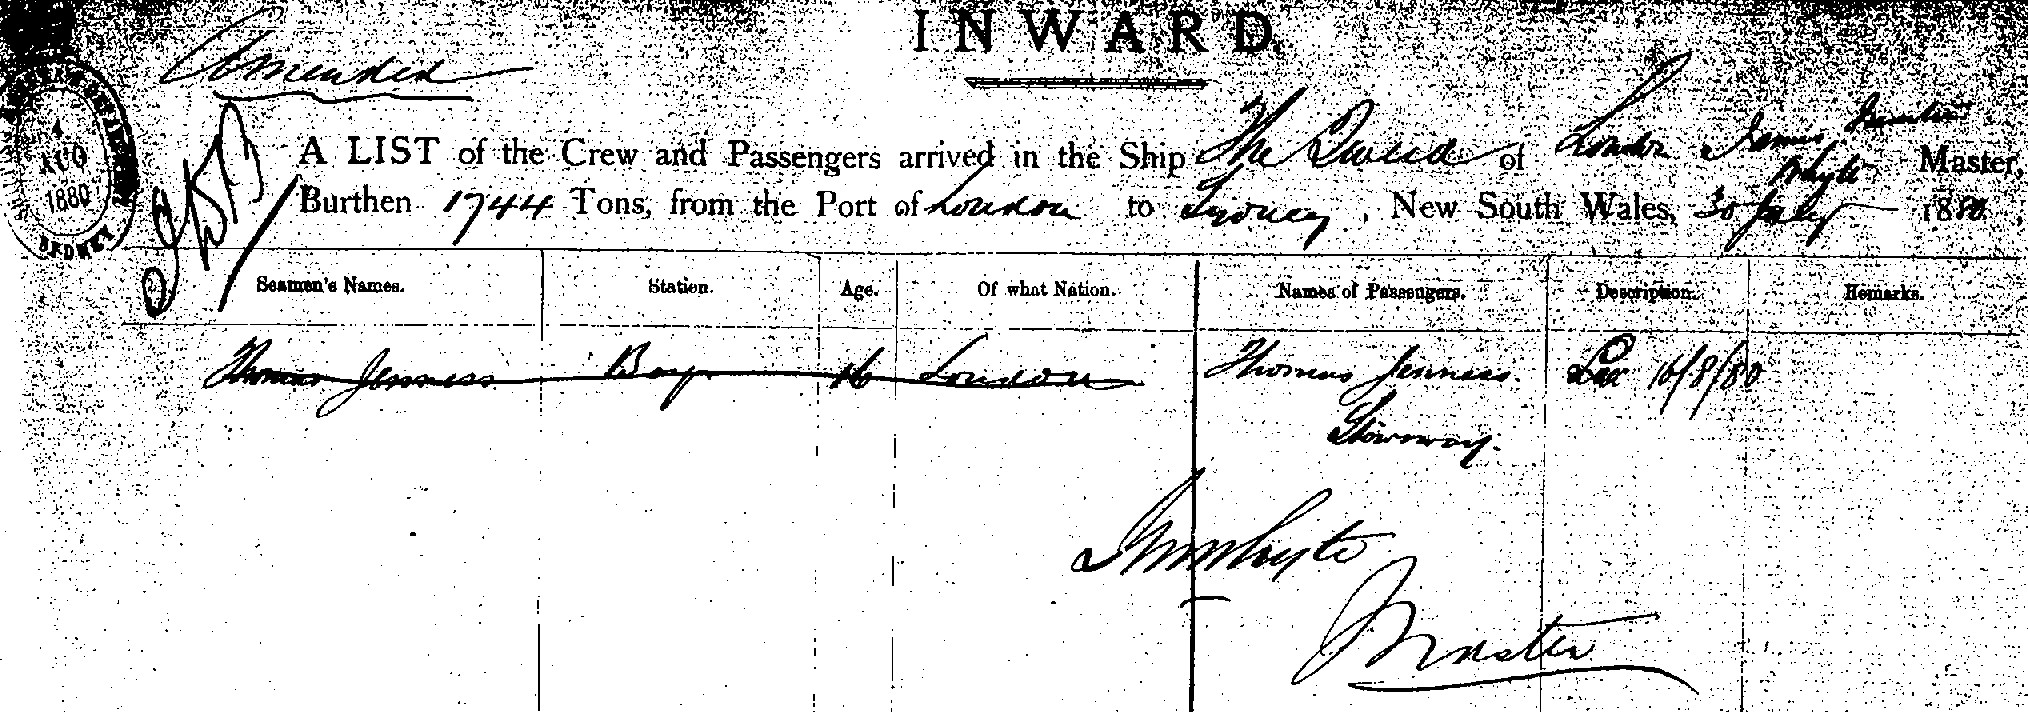 INWARD.
Amended
4
AUG
1880
SYDNEY
A LIST of the Crew and Passengers arrived in the Ship The Tweed of London James Whyte Master,
Burthen 1744 Tons, from the Port of London to Sydney, New South Wales, 30 July 1880,
Seamen's Names. Station. Age. Of what Nation. Names of Passengers. Description. Remarks.
Thomas Jenness Boy 16 London Thomas Jenness. 16/8/80
Stowaway.
JNWhyte
Master